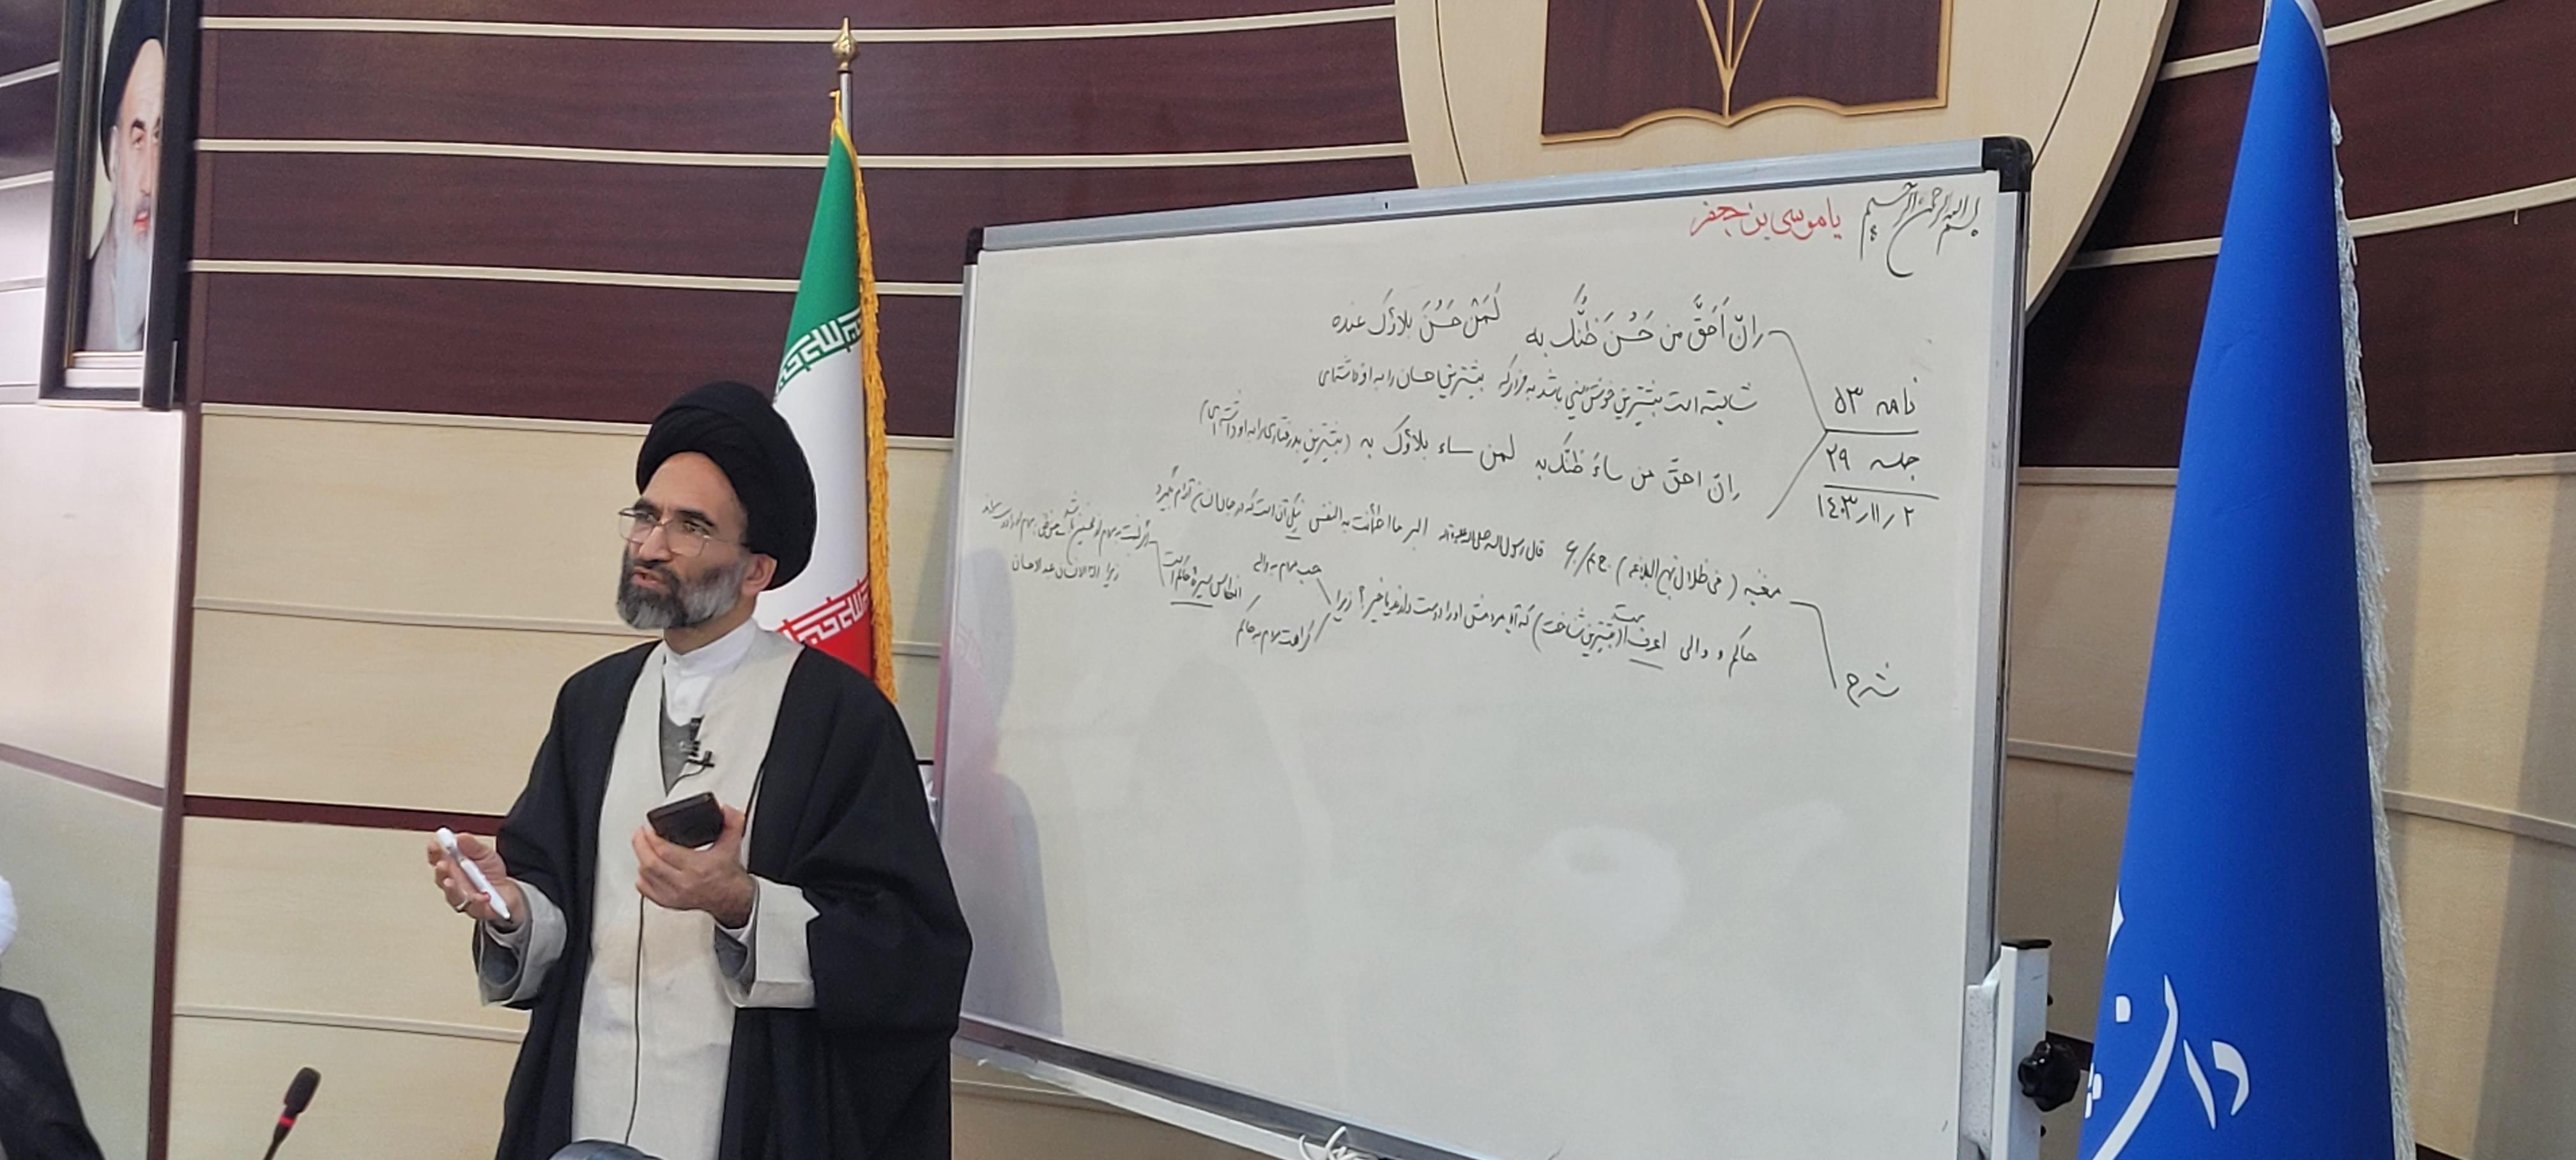 بسم الله الرحمن الرحیم
یا موسی بن جعفر
نامه ۵۳
جلسه ۲۹
۱۴۰۳/۱۱/۲
إنّ أَحَقَّ من حَسُنَ ظنُّك به لَمَنْ حَسُنَ بلاؤك عنده
شایسته است بیشترین خوش بینی باشد به هر آنکه بیشترین احسان را به او داشته‌ای
إنّ احقّ من ساءَ ظنّک به لمن ساء بلاؤک به (بیشترین بدرفتاری را به او داشته ای)
شرح
مغنیه (فی ظلال نهج البلاغه) قال رسول الله صلی الله علیه وآله البر ما اطمأنت به النفس نیکی آن است که در جان انسان آرام گیرد
حاکم و والی اعرف است (بیشترین شناخت) که آیا مردمش او را دوست دارند یا خیر؟ زیرا
حب مردم به والی
کراهت مردم به حاکم
انعکاس سیرهٔ حاکم است
زیرا انّ الانسان عبد الاحسان
الله
الله
دان